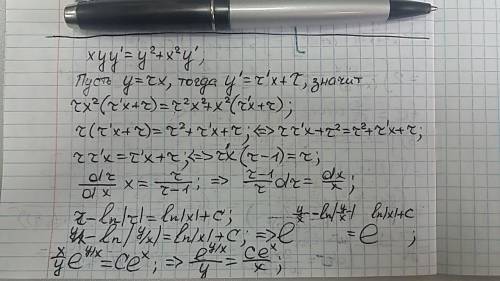 xyy' = y² + x²y',
Пусть y = τx, тогда y' = τ'x + τ, значит
τx²(τ'x + τ) = τ²x² + x²(τ'x + τ);
τ(τ'x + τ) = τ² + τ'x + τ; <=> ττ'x + τ² = τ² + τ'x + τ;
ττ'x = τ'x + τ; <=> τ'x(τ - 1) = τ;
dτ/dx x = τ/(τ-1); => (τ-1)/τ dτ = dx/x;
τ - ln|τ| = ln|x| + c;
y/x - ln|y/x| = ln|x| + c; => e^(y/x - ln|y/x|) = e^(ln|x| + c);
x/y e^(y/x) = ce^x; => e^(y/x)/y = ce^x/x;